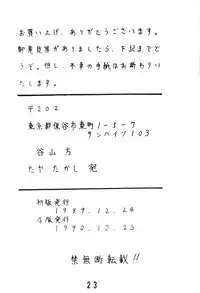 お買い上げ、ありがとうございます。
御意見等がありましたら、下記までど
うぞ。但し、不幸の手紙はお断りい
たします。
〒202
東京都保谷市東町1-5-7
サンハイツ103
谷山方
たやたかし宛
初版発行
1989.12.24
4版発行
1990.12.23
禁無断転載!!
23